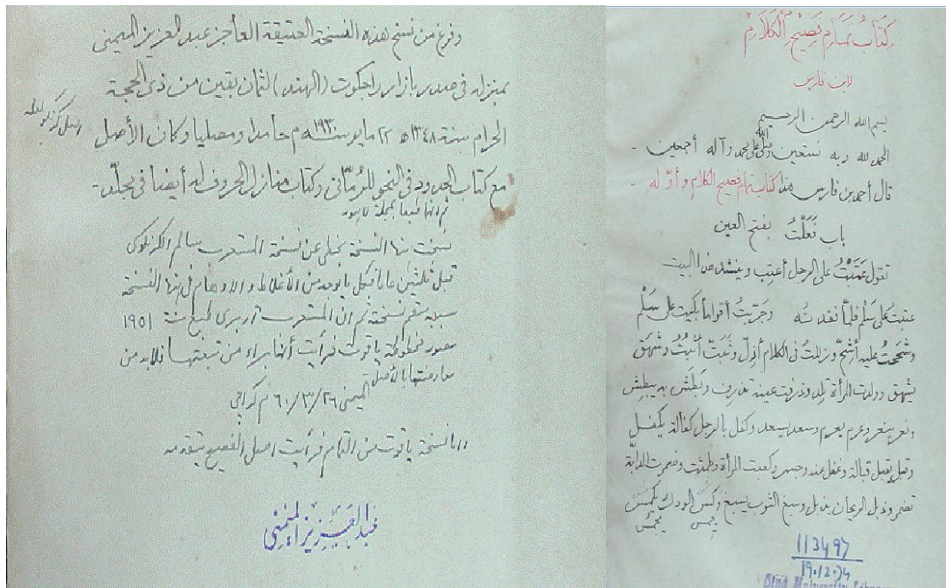 كتابُ تمام فصيح الكلام
لابن فارس
بسم الله الرحمن الرحيم
الحمد لله وبه نستعين وصلّى الله على محمد وآله أجمعين -
قال أحمد بن فارس هذا كتاب تمام فصيح الكلام وأوّله -
باب فَعَلْتُ بفتح العين
تقول عَتَبْتُ على الرجل أعتِب وينشد هذا البيت
عتبتُ على سَلْمٍ فلمّا فقدته وجرّبتُ أقواماً بكيت على سَلْمِ
وشححت عليه أشحّ وزللت في الكلام أزلّ وشهق
يشهق وولدت المرأة تلد وذرفت عينه تذرف وبطش به يبطش
ونعر ينعر وعرم يعرم وسعد يسعد وكفل بالرجل كفالة يكفل
وقبل يقبل قبالة وغفل عنه وكعبت المرأة وطمثت وضمرت الدابّة
تضمر وذبل الريحان يذبل وسبغ الثوب يسبغ
113497
19.12.74
وفرغ من نسخ هذه النسخة العتيقة العاجز عبد العزيز الميمني
بمنزله في صدر بازار راجكوت (الهند) لثمان بقين من ذي الحجة
الحرام سنة ١٣٤٨ھ ٢٢ مايو سنة ١٩٣٠م حامدا ومصليا وكان الأصل
مع كتاب الحدود في النحو للرُمّاني وكتاب منازل الحروف له أيضا في مجلّد -
نسخت هذه النسخة بخطي عن نسخة المستشرق سالم الكرنكوي
قبل ثلاثين عاما فكل ما يوجد من الأغلاط والأوهام في هذه النسخة
سببه سقم نسخته ثم ان المستشرق آربري طبع سنة ١٩٥١
معارضتها بالأصل
الميمني ٢٦/٣/٦٠م كراچي
عبد العزيز الميمني